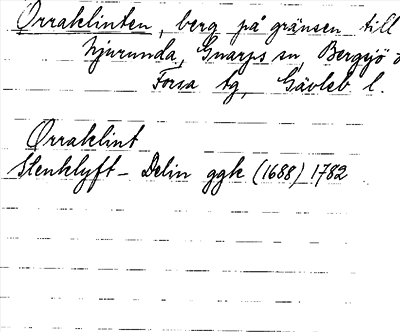 Orraklinten, berg på gränsen till
Njurunda, Gnarps sn, Bergsjö o
Forsa tg, Gävleb l.
Orraklint
Stenklyft - Delin ggk (1688) 1782